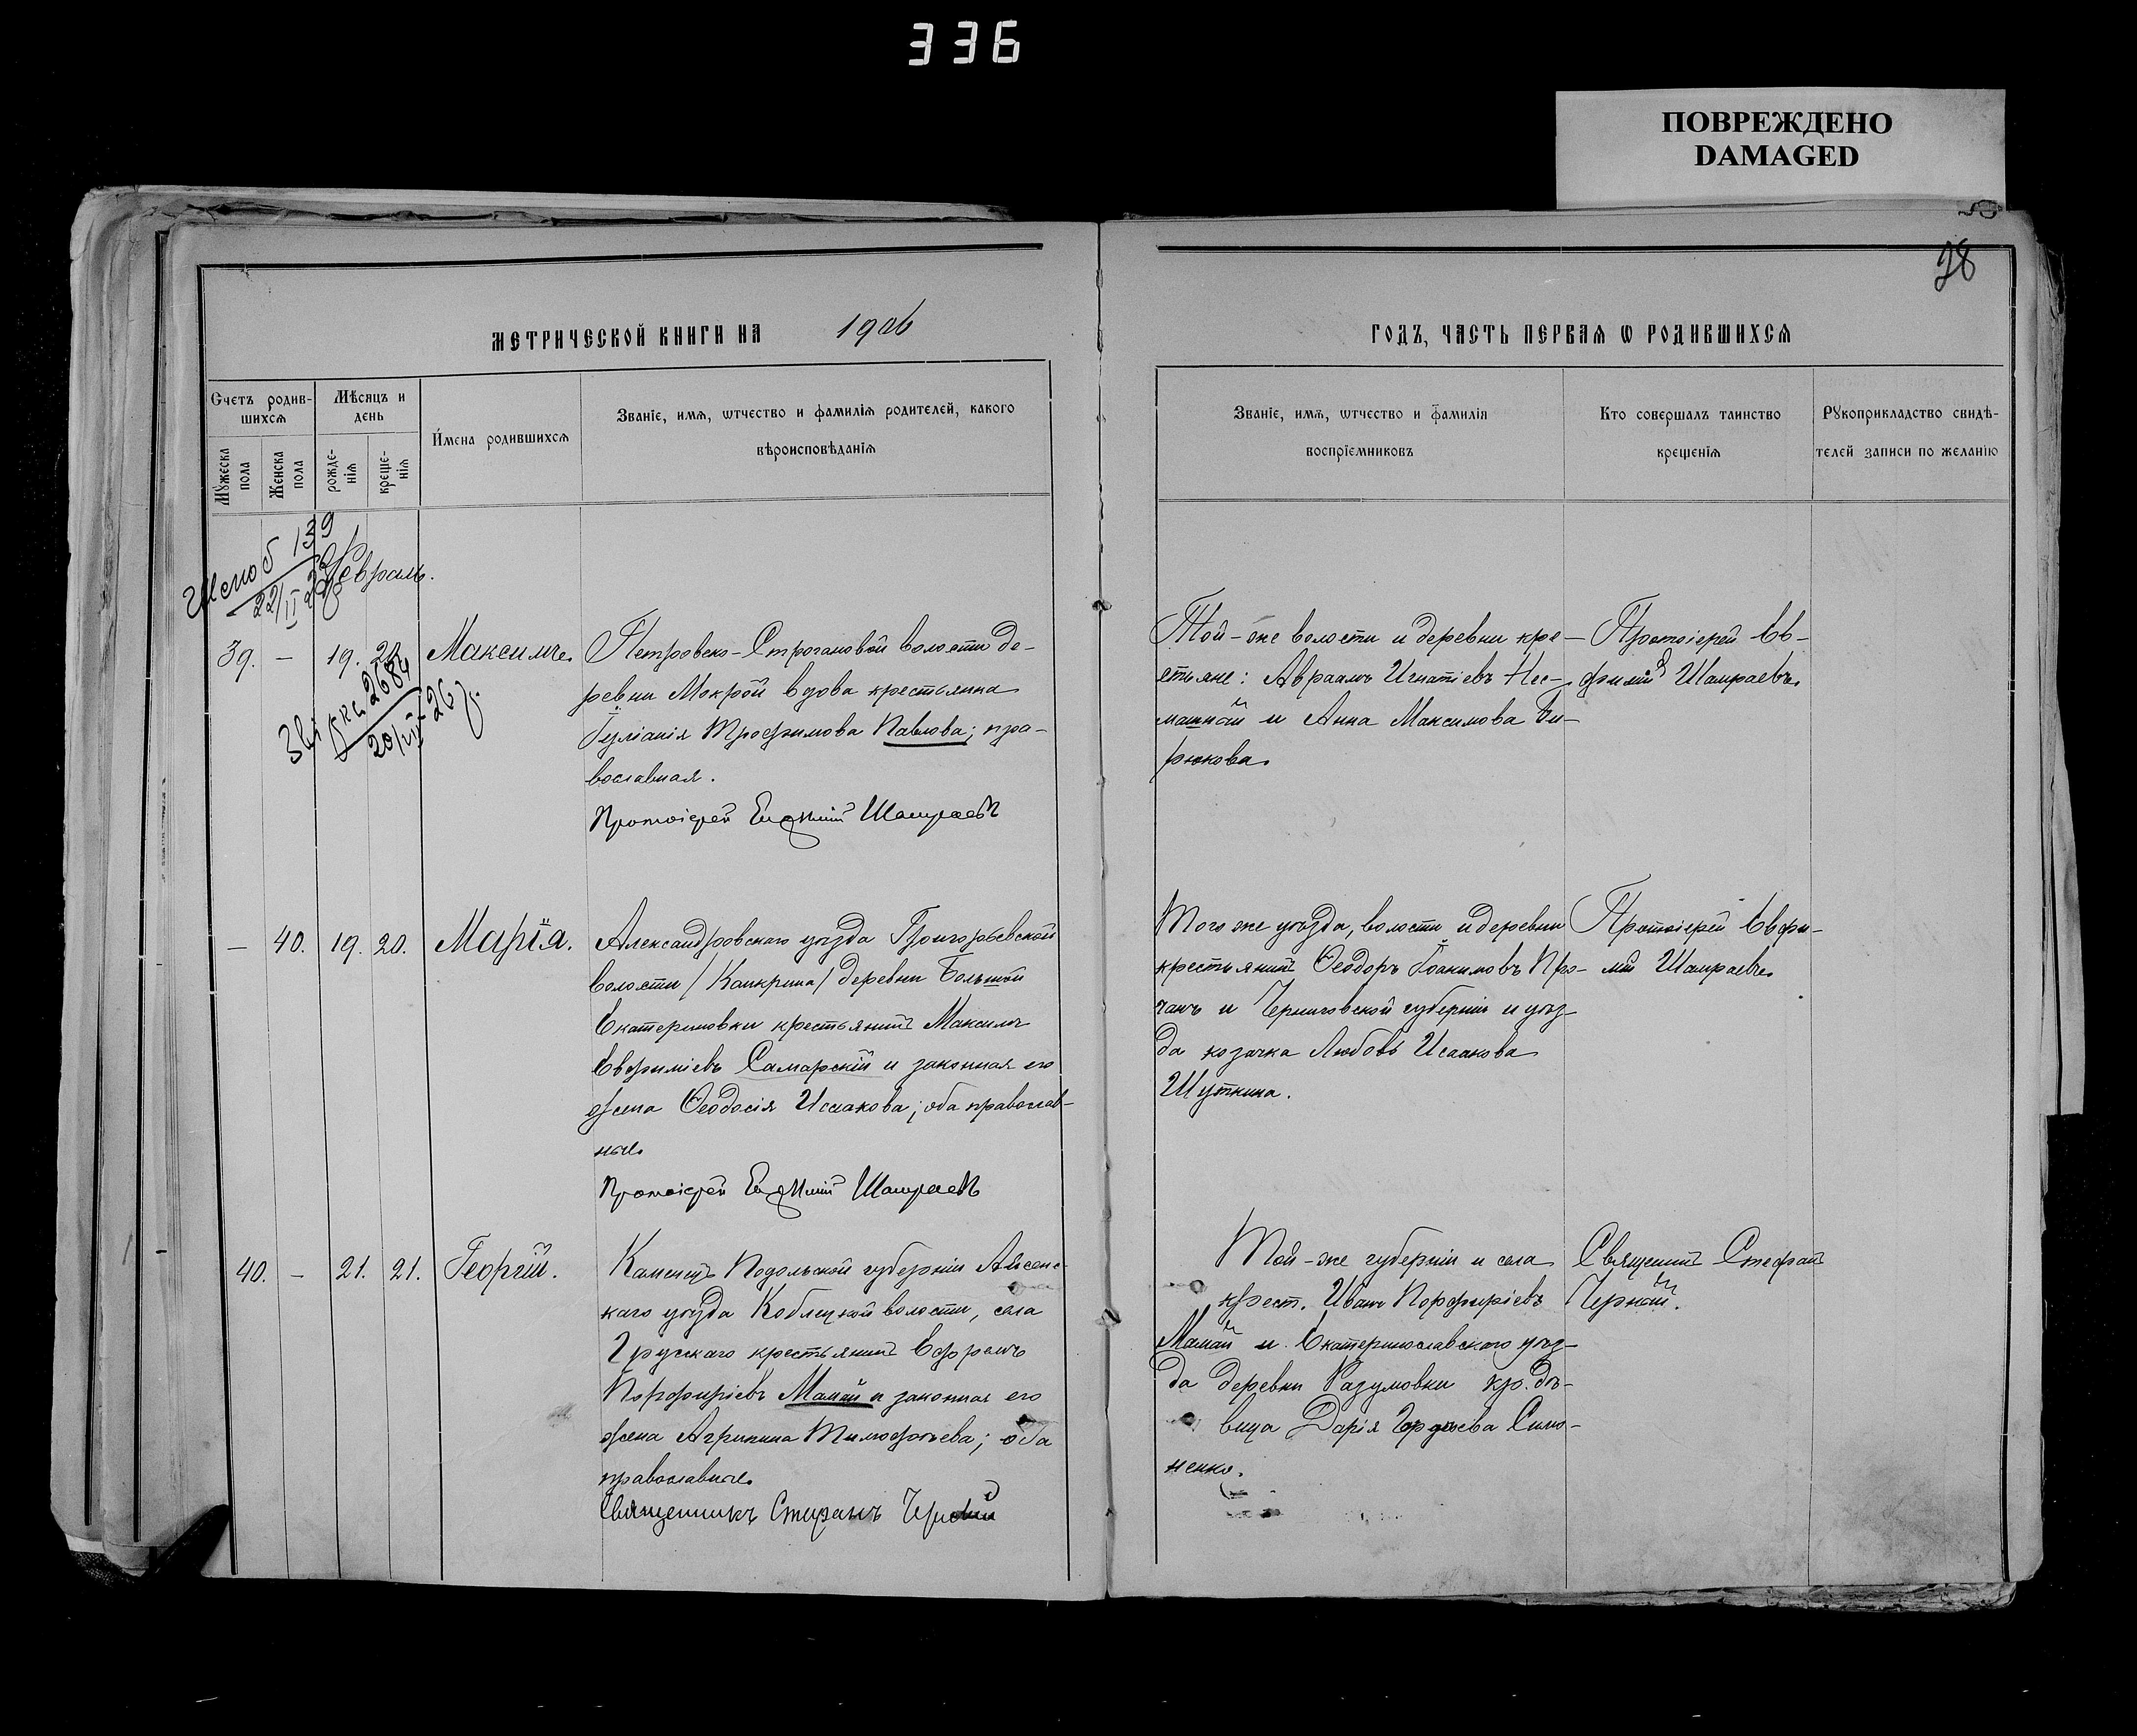 336
ПОВРЕЖДЕНО
DAMAGED
28
МЕТРИЧЕСКОЙ КНИГИ НА 1906
ГОДЪ, ЧАСТЬ ПЕРВАЯ Ѡ РОДИВШИХСЯ
Счетъ родив-
шихся
Мѣсяцъ и
день
Имена родившихся
Званіе, имя, ѡтчество и фамилія родителей, какого
вѣроисповѣданія
Мꙋжеска
пола
Женска
пола
рожде-
нія
креще-
нія
Званіе, имя, ѡтчество и фамилія
воспріемниковъ
Кто совершалъ таинство
крещенія
Рꙋкоприкладство свидѣ-
телей записи по желанію
139
22/II 26
Февраль.
39. — 19. Максимъ. Петровско-Строгановой волости де-
ревни Мокрой вдова крестьянина
Іуліанія Трофимова Павлова; пра-
вославная.
Протоіерей Евфимій Шамраевъ
2684
20/VII 26 г.
Той-же волости и деревни кре-
стьяне: Авраамъ Игнатіевъ Нес-
машный и Анна Максимова Би-
рюкова.
Протоіерей Ев-
фимій Шамраевъ.
— 40. 19. 20. Марія. Александровскаго уѣзда Григорьевской
волости /Канкрина/ деревни Большой
Екатериновки крестьянинъ Максимъ
Евфиміевъ Самарскій и законная его
жена Ѳеодосія Исаакова; оба православ-
ные.
Протоіерей Евфимій Шамраевъ
Того же уѣзда, волости и деревни
крестьянинъ Ѳеодоръ Іоакимовъ Про-
чанъ и Черниговской губерніи и уѣз-
да козачка Любовь Исаакова
Шуткина.
Протоіерей Евфи-
мій Шамраевъ.
40. — 21. 21. Георгій. Каменецъ Подольской губерніи
каго уѣзда волости, села
крестьянинъ Ефремъ
Порфиріевъ Мамай и законная его
жена Агрипина Тимофѣева; оба
православные.
Священникъ Стефанъ Черный
Той-же губерніи и села
крест. Иванъ Порфиріевъ
Мамай и Екатеринославского уѣз-
да деревни Разумовки кр. дѣ-
вица Дарія Гордѣева Симо-
ненко.
Священникъ Стефанъ
Черный.